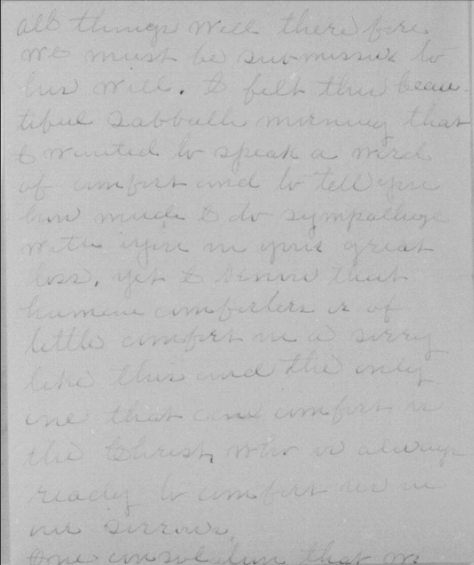 all things well there fore
we must be submissive to
his will. I felt this beau-
tiful Sabbath morning that
I wanted to speak a word
of comfort and to tell you
how much I do sympathize
with you in your great
loss, yet I know that
humane comforters is of
little comfort in a sorry
like this and the only
one that can comfort is
the Christ, who is always
ready to comfort us in
our sorrow.
One consol that we